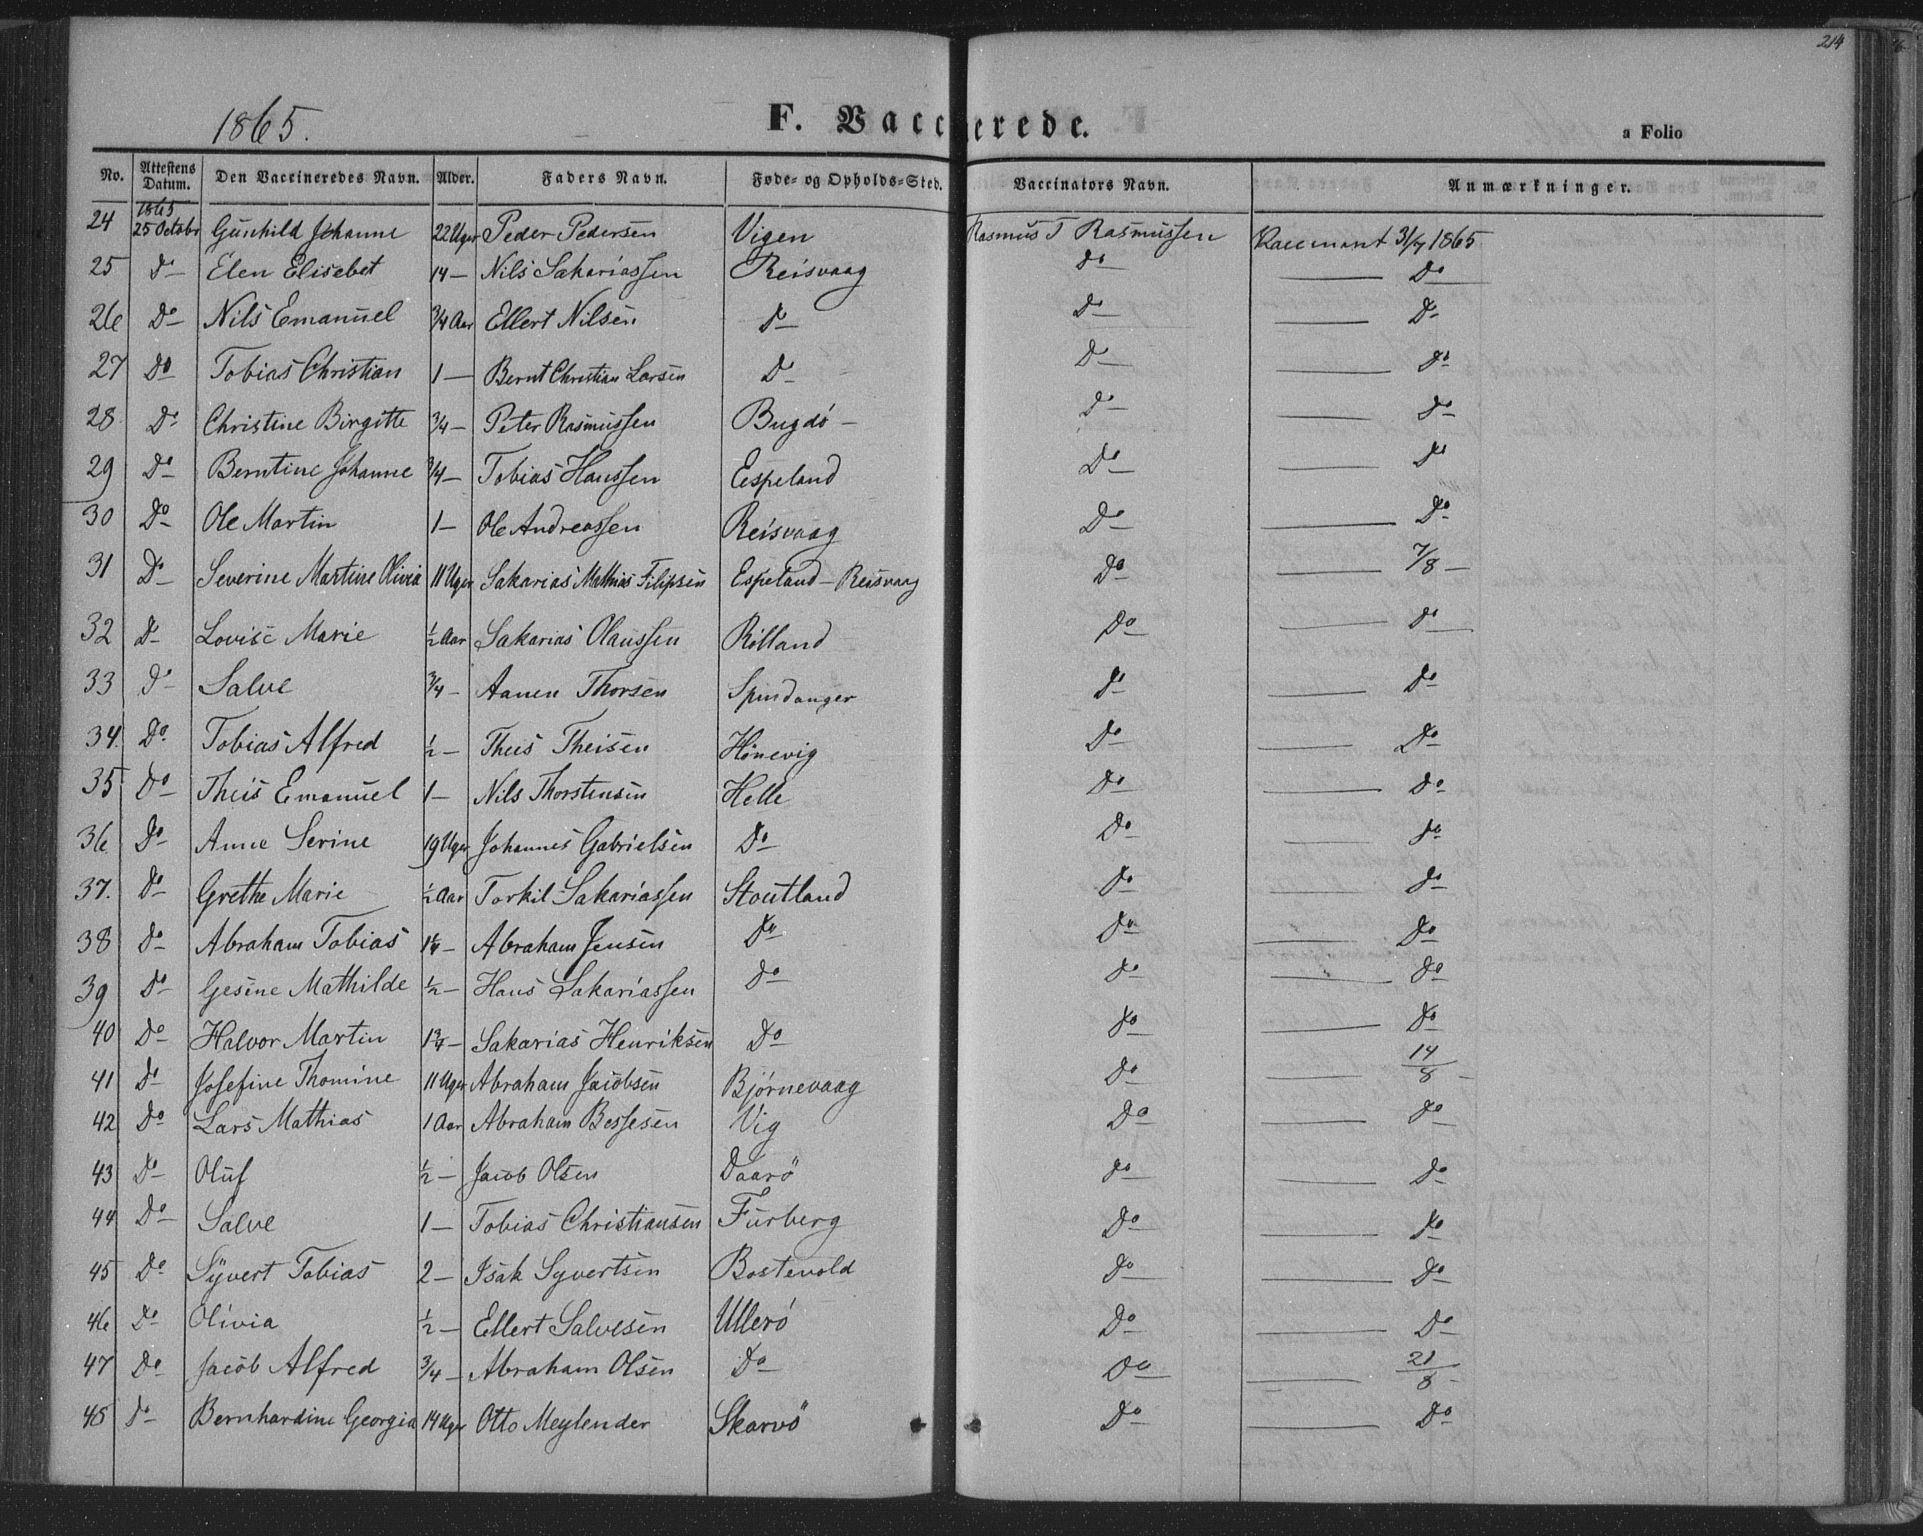 214
1865.
F. Vaccinerede.
a Folio
No. Attestens Datum. Den Vaccineredes Navn. Alder. Faders Navn. Føde- og Opholds-Sted. Vaccinators Navn. Anmærkninger.
1865
24 25 Octobr Gunhild Johanne 22 Uger Peder Pedersen Vigen Rasmus T Rasmussen 31/7 1865
25 Do Elen Elisebet 14 — Nils Sakariassen Reisvaag Do — Do
26 Do Nils Emanuel 3/4 Aar Ellert Nilsen Do Do — Do
27 Do Tobias Christian 1 — Bernt Christian Larsen Do Do — Do
28 Do Christine Birgitte 3/4 — Peter Rasmussen Bugdö — Do — Do
29 Do Berntine Johanne 3/4 — Tobias Hanssen Eespeland Do — Do
30 Do Ole Martin 1 — Ole Andreassen Reisvaag Do — Do
31 Do Severine Martine Olivia 11 Uger Sakarias Mathias Filipsen Espeland — Reisvaag Do — 7/8 —
32 Do Lovise Marie 1/2 Aar Sakarias Olaussen Rölland Do — Do
33 Do Salve 3/4 — Aanen Thorsen Spindanger Do — Do
34. Do. Tobias Alfred 1/2 — Theis Theisen Hönevig Do — Do
35 Do Theis Emanuel 1 — Nils Thorstensen Helle Do — Do
36 Do Anne Serine 19 Uger Johannes Gabrielsen Do Do — Do
37. Do Grethe Marie 1/2 Aar Torkil Sakariassen Stoutland Do — Do
38 Do Abraham Tobias 1 1/4 — Abraham Jensen Do Do — Do
39 Do Gesine Mathilde 1/2 — Hans Sakariassen Do Do — Do
40 Do Halvor Martin 1 3/4 — Sakarias Henriksen Do Do — Do
41 Do Josefine Thomine 11 Uger Abraham Jacobsen Björnevaag Do — 14/8 —
42 Do Lars Mathias 1 Aar Abraham Bessesen Vig Do — Do
43 Do Oluf 1/2 — Jacob Olsen Daarö Do — Do
44 Do Salve 1 — Tobias Christiansen Furberg Do — Do
45 Do Syvert Tobias 2 — Isak Syvertsen Bostevold Do — Do
46 Do Olivia 1/2 — Ellert Salvesen Ullerö Do — Do
47 Do Jacob Alfred 3/4 — Abraham Olsen Do Do — 21/8 —
48 Do Bernhardine Georgia 14 Uger Otto Meylender Skarvö Do — Do